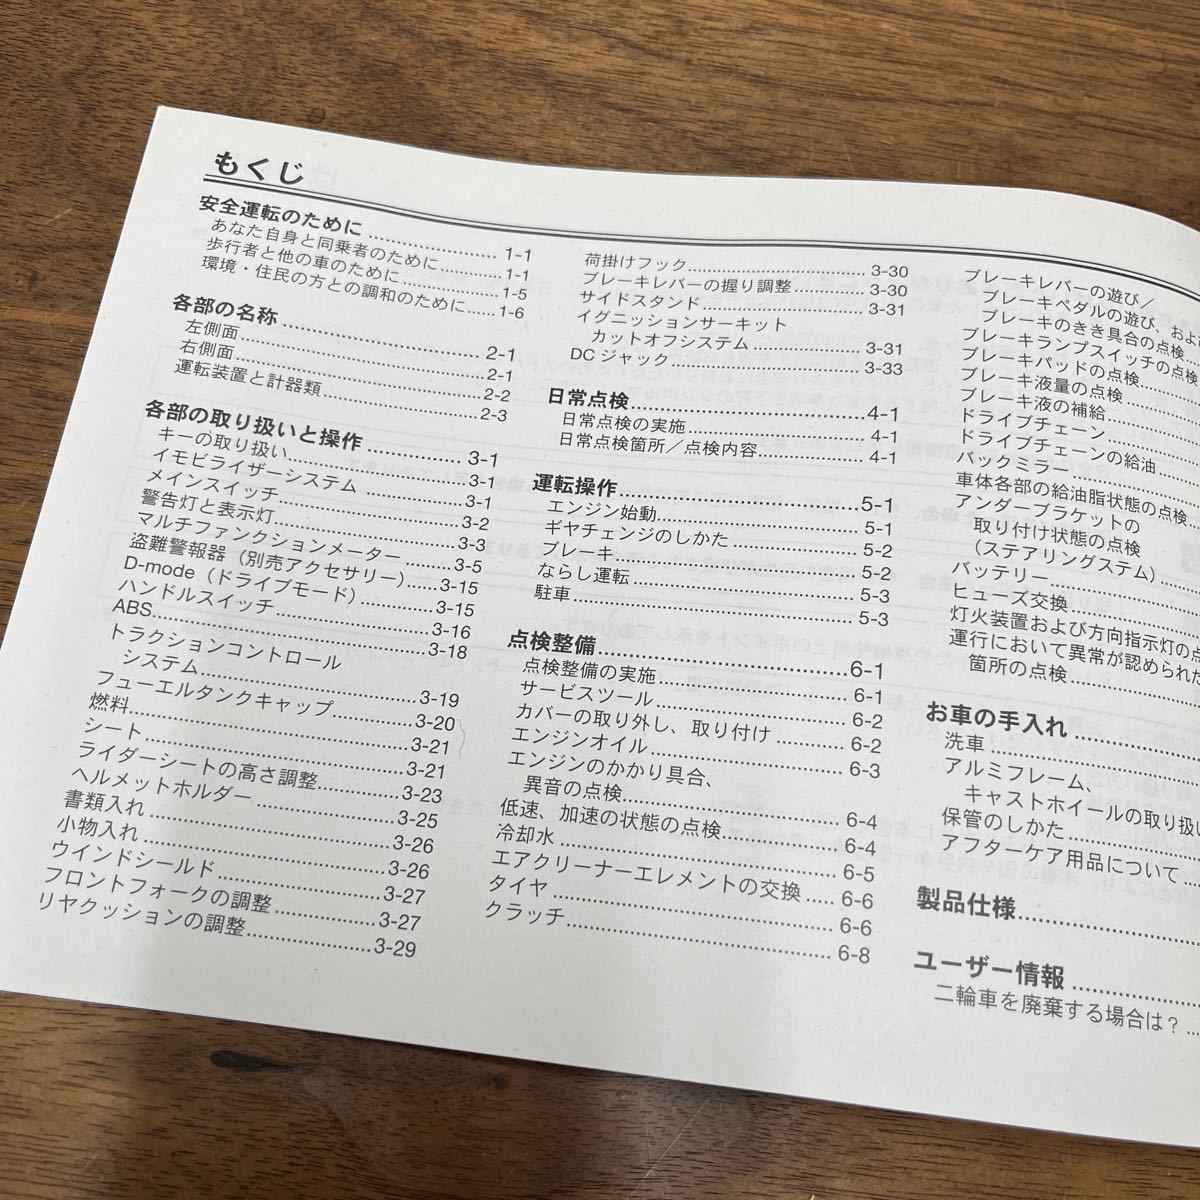 もくじ
安全運転のために ........ 1-1
あなた自身と同乗者のために ........ 1-1
歩行者と他の車のために ........ 1-5
環境・住民の方との調和のために ........ 1-6
各部の名称 ........ 2-1
左側面 ........ 2-1
右側面 ........ 2-2
運転装置と計器類 ........ 2-3
各部の取り扱いと操作 ........ 3-1
キーの取り扱い ........ 3-1
イモビライザーシステム ........ 3-1
メインスイッチ ........ 3-2
警告灯と表示灯 ........ 3-3
マルチファンクションメーター ........ 3-5
盗難警報器（別売アクセサリー） ........ 3-15
D-mode（ドライブモード） ........ 3-15
ハンドルスイッチ ........ 3-16
ABS ........ 3-18
トラクションコントロール
システム ........ 3-19
フューエルタンクキャップ ........ 3-20
燃料 ........ 3-21
シート ........ 3-21
ライダーシートの高さ調整 ........ 3-23
ヘルメットホルダー ........ 3-25
書類入れ ........ 3-26
小物入れ ........ 3-26
ウインドシールド ........ 3-27
フロントフォークの調整 ........ 3-27
リヤクッションの調整 ........ 3-29
荷掛けフック ........ 3-30
ブレーキレバーの握り調整 ........ 3-30
サイドスタンド ........ 3-31
イグニッションサーキット
カットオフシステム ........ 3-31
DCジャック ........ 3-33
日常点検 ........ 4-1
日常点検の実施 ........ 4-1
日常点検箇所／点検内容 ........ 4-1
運転操作 ........ 5-1
エンジン始動 ........ 5-1
ギヤチェンジのしかた ........ 5-2
ブレーキ ........ 5-2
ならし運転 ........ 5-3
駐車 ........ 5-3
点検整備 ........ 6-1
点検整備の実施 ........ 6-1
サービスツール ........ 6-2
カバーの取り外し、取り付け ........ 6-2
エンジンオイル ........ 6-3
エンジンのかかり具合、
異音の点検 ........ 6-4
低速、加速の状態の点検 ........ 6-4
冷却水 ........ 6-5
エアクリーナーエレメントの交換 ........ 6-6
タイヤ ........ 6-6
クラッチ ........ 6-8
ブレーキレバーの遊び／
ブレーキペダルの遊び、およ
ブレーキのきき具合の点検
ブレーキランプスイッチの点検
ブレーキパッドの点検
ブレーキ液量の点検
ブレーキ液の補給
ドライブチェーン
ドライブチェーンの給油
バックミラー
車体各部の給油脂状態の点検
アンダーブラケットの
取り付け状態の点検
（ステアリングステム）
バッテリー
ヒューズ交換
灯火装置および方向指示灯の点
運行において異常が認められた
箇所の点検
お車の手入れ
洗車
アルミフレーム、
キャストホイールの取り扱い
保管のしかた
アフターケア用品について
製品仕様
ユーザー情報
二輪車を廃棄する場合は？